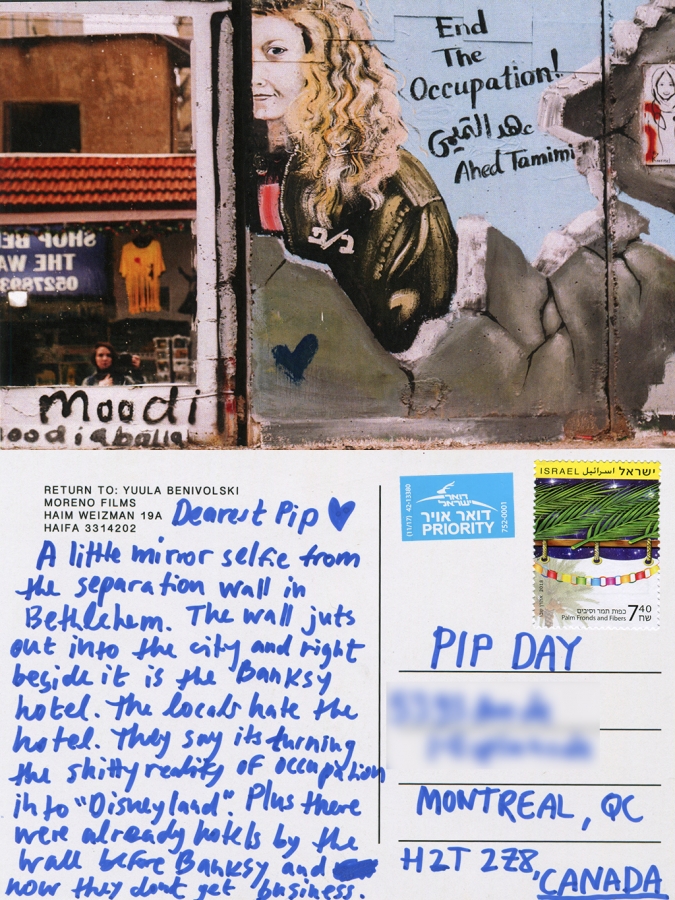 End
The
Occupation!
عهد التميمي
Ahed Tamimi
SHOP BE
THE WA
0527893
Moodi
moodiaballa
RETURN TO: YUULA BENIVOLSKI
MORENO FILMS
HAIM WEIZMAN 19A
HAIFA 3314202
Dearest Pip
A little mirror selfie from
the separation wall in
Bethlehem. The wall juts
out into the city and right
beside it is the Banksy
hotel. The locals hate the
hotel. They say its turning
the shitty reality of occupation
into "Disneyland". Plus there
were already hotels by the
wall before Banksy and
now they dont get business.
(11/17) 42-13380
דואר
ישראל
דואר אויר
PRIORITY
752-0001
ISRAEL اسرائيل ישראל
2018
כפות תמר וסיבים
Palm Fronds and Fibers
7.40
שח
PIP DAY
MONTREAL, QC
H2T 2Z8,
CANADA